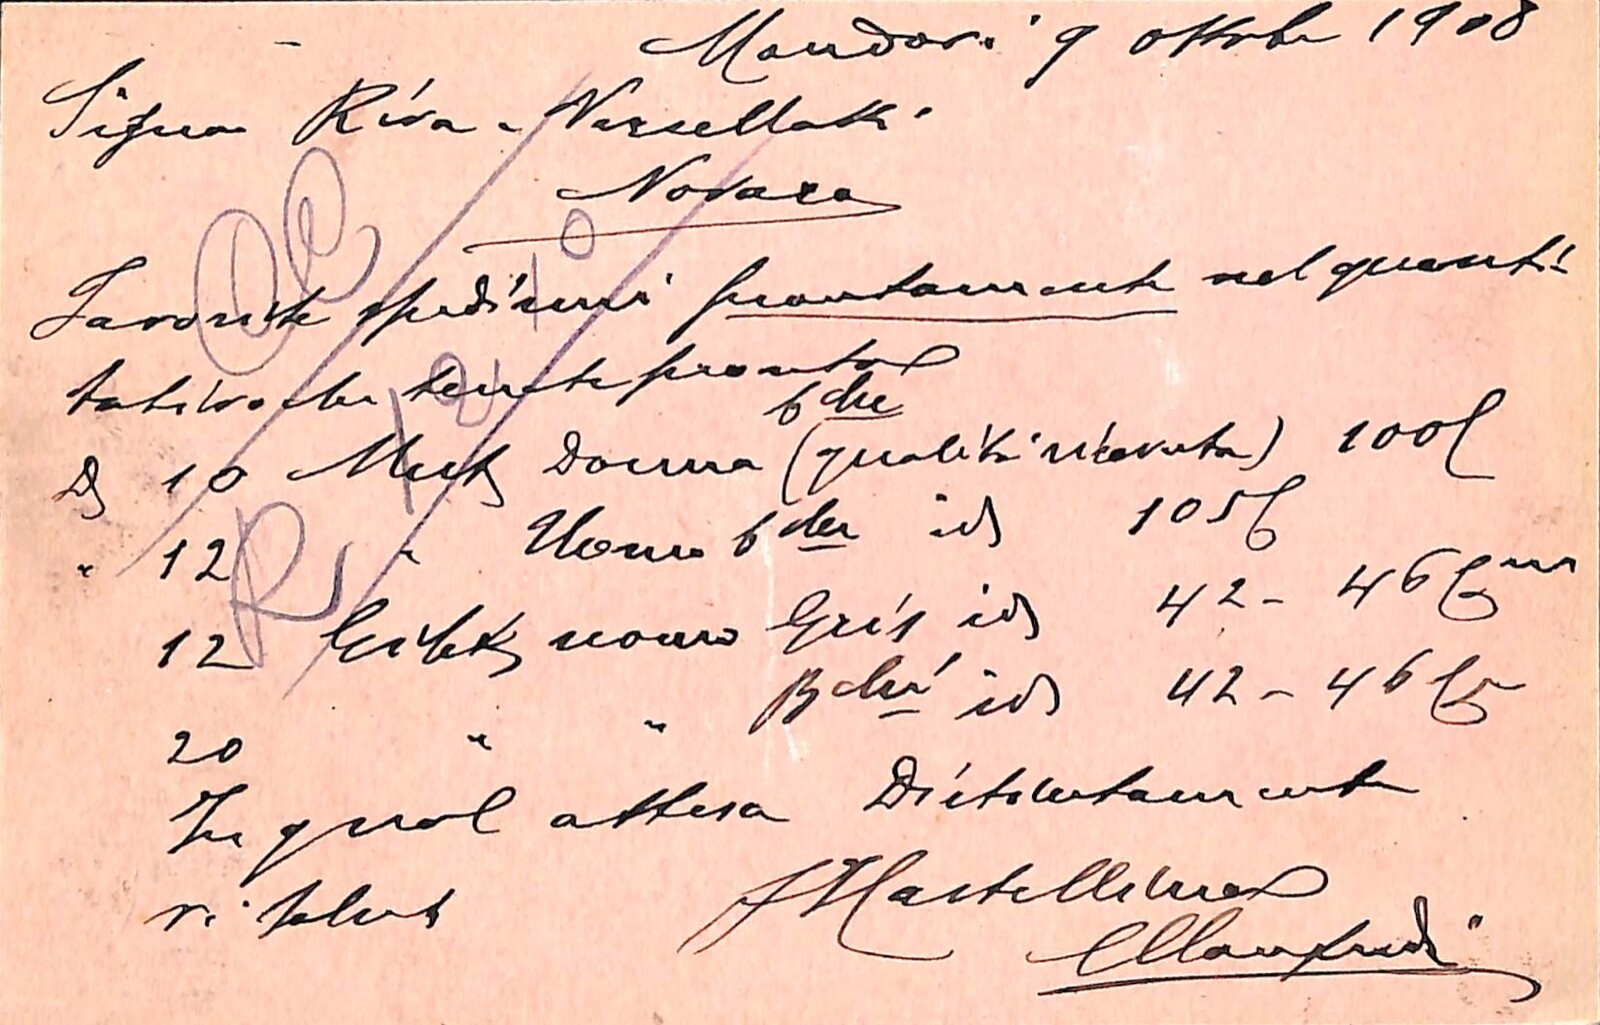 Mandovi 9 ottobre 1908
Signor Riva - Vercellotti
Novara
Favorite spedirmi prontamente nel quanti-
tativo che tenete pronto
Dz 10 Mutz Donna (qualità ricevuta) 100
" 12 " Uomo id 105
12 Gilets uomo Gris id 42 - 46
20 " " id 42 - 46
In qual attesa Distintamente
vi saluto
Manfredi
OC
R 12 10